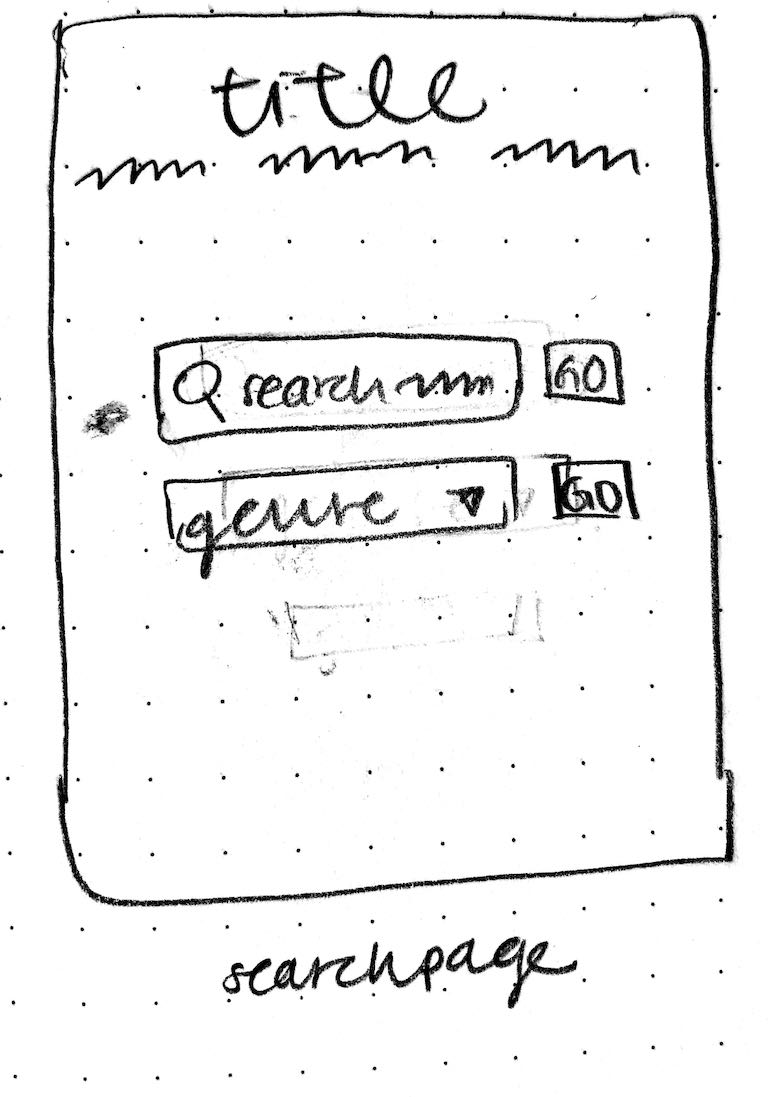 title
search GO
genre GO
searchpage